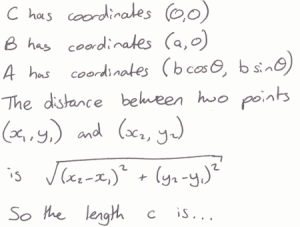 C has coordinates (0,0)
B has coordinates (a,0)
A has coordinates (b cosθ, b sinθ)
The distance between two points
(x₁, y₁) and (x₂, y₂)
is √(x₂-x₁)² + (y₂-y₁)²
So the length c is...